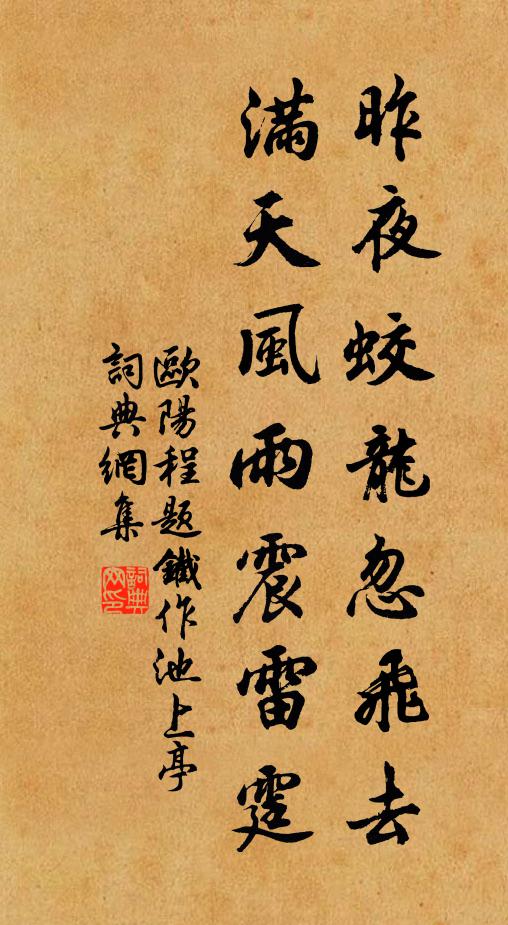 昨夜蛟龍忽飛去
滿天風雨震雷霆
歐陽程題鐵作池上亭
詞典網集
詞典
网印